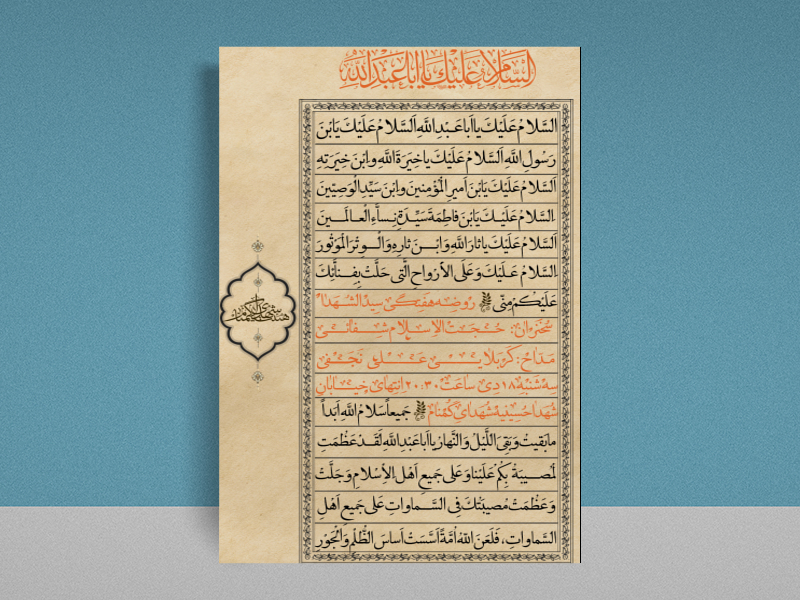 اَلسَّلامُ عَلَيْكَ يا اَبا عَبْدِ اللهِ
اَلسَّلامُ عَلَيْكَ يا اَبا عَبْدِ اللَّهِ اَلسَّلامُ عَلَيْكَ يَا بْنَ
رَسُولِ اللَّهِ اَلسَّلامُ عَلَيْكَ يا خِيَرَةَ اللَّهِ وابْنَ خِيَرَتِهِ
اَلسَّلامُ عَلَيْكَ يَا بْنَ اَميرِ الْمُؤْمِنينَ وابْنَ سَيِّدِ الْوَصِيّينَ
اَلسَّلامُ عَلَيْكَ يَا بْنَ فاطِمَةَ سَيِّدَةِ نِساَّءِ الْعالَمينَ
اَلسَّلامُ عَلَيْكَ يا ثارَ اللَّهِ وَابْنَ ثارِهِ وَالْوِتْرَ الْمَوْتُورَ
اَلسَّلامُ عَلَيْكَ وَعَلَى الأَرْواحِ الَّتى حَلَّتْ بِفِناَّئِكَ
عَلَيْكُمْ مِنّى روضه هفتگی سیدالشهدا
سخنران: حجت الاسلام شفائی
مداح: کربلایی علی نجفی
سه شنبه ۱۸ دی ساعت ۲۰:۳۰ انتهای خیابان
شهدا حسینیه شهدای گمنام جَميعاً سَلامُ اللَّهِ اَبَداً
ما بَقيتُ وَبَقِىَ اللَّيْلُ وَالنَّهارُ يا اَبا عَبْدِ اللَّهِ لَقَدْ عَظُمَتِ
لْمُصيبَةُ بِكُمْ عَلَيْنا وَعَلى جَميعِ اَهْلِ الاِسْلامِ وَجَلَّتْ
وَعَظُمَتْ مُصيبَتُكَ فِى السَّماواتِ عَلى جَميعِ اَهْلِ
السَّماواتِ، فَلَعَنَ اللَّهُ اُمَّةً اَسَّسَتْ اَساسَ الظُّلْمِ وَالْجَوْرِ